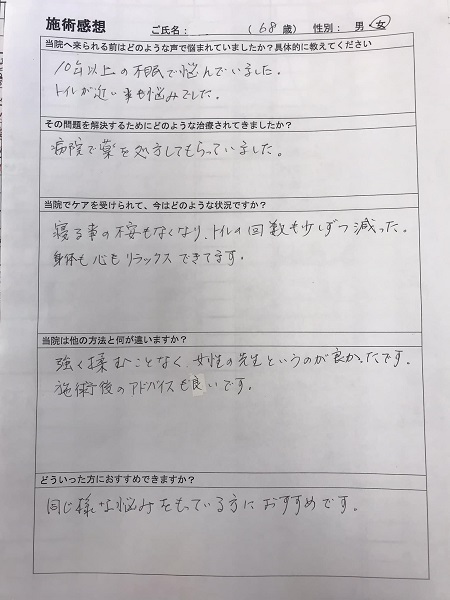 施術感想 ご氏名: (68歳) 性別: 男 女
当院へ来られる前はどのような声で悩まれていましたか?具体的に教えてください
10年以上の不眠で悩んでいました。
トイレが近い事も悩みでした。
その問題を解決するためにどのような治療されてきましたか?
病院で薬を処方してもらっていました。
当院でケアを受けられて、今はどのような状況ですか?
寝る事の不安もなくなり、トイレの回数も少しずつ減った。
身体も心もリラックスできてます。
当院は他の方法と何が違いますか?
強く揉むことなく、女性の先生というのが良かったです。
施術後のアドバイスも良いです。
どういった方におすすめできますか?
同じ様な悩みをもっている方におすすめです。